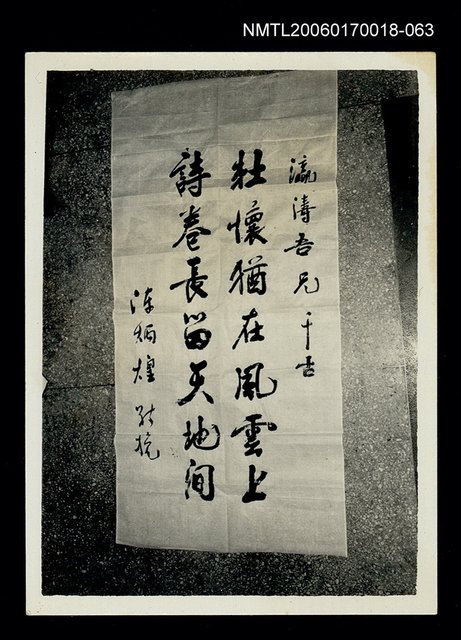 NMTL20060170018-063
瀛濤吾兄千古
壯懷猶在風雲上
詩卷長留天地間
陳炳煌敬輓